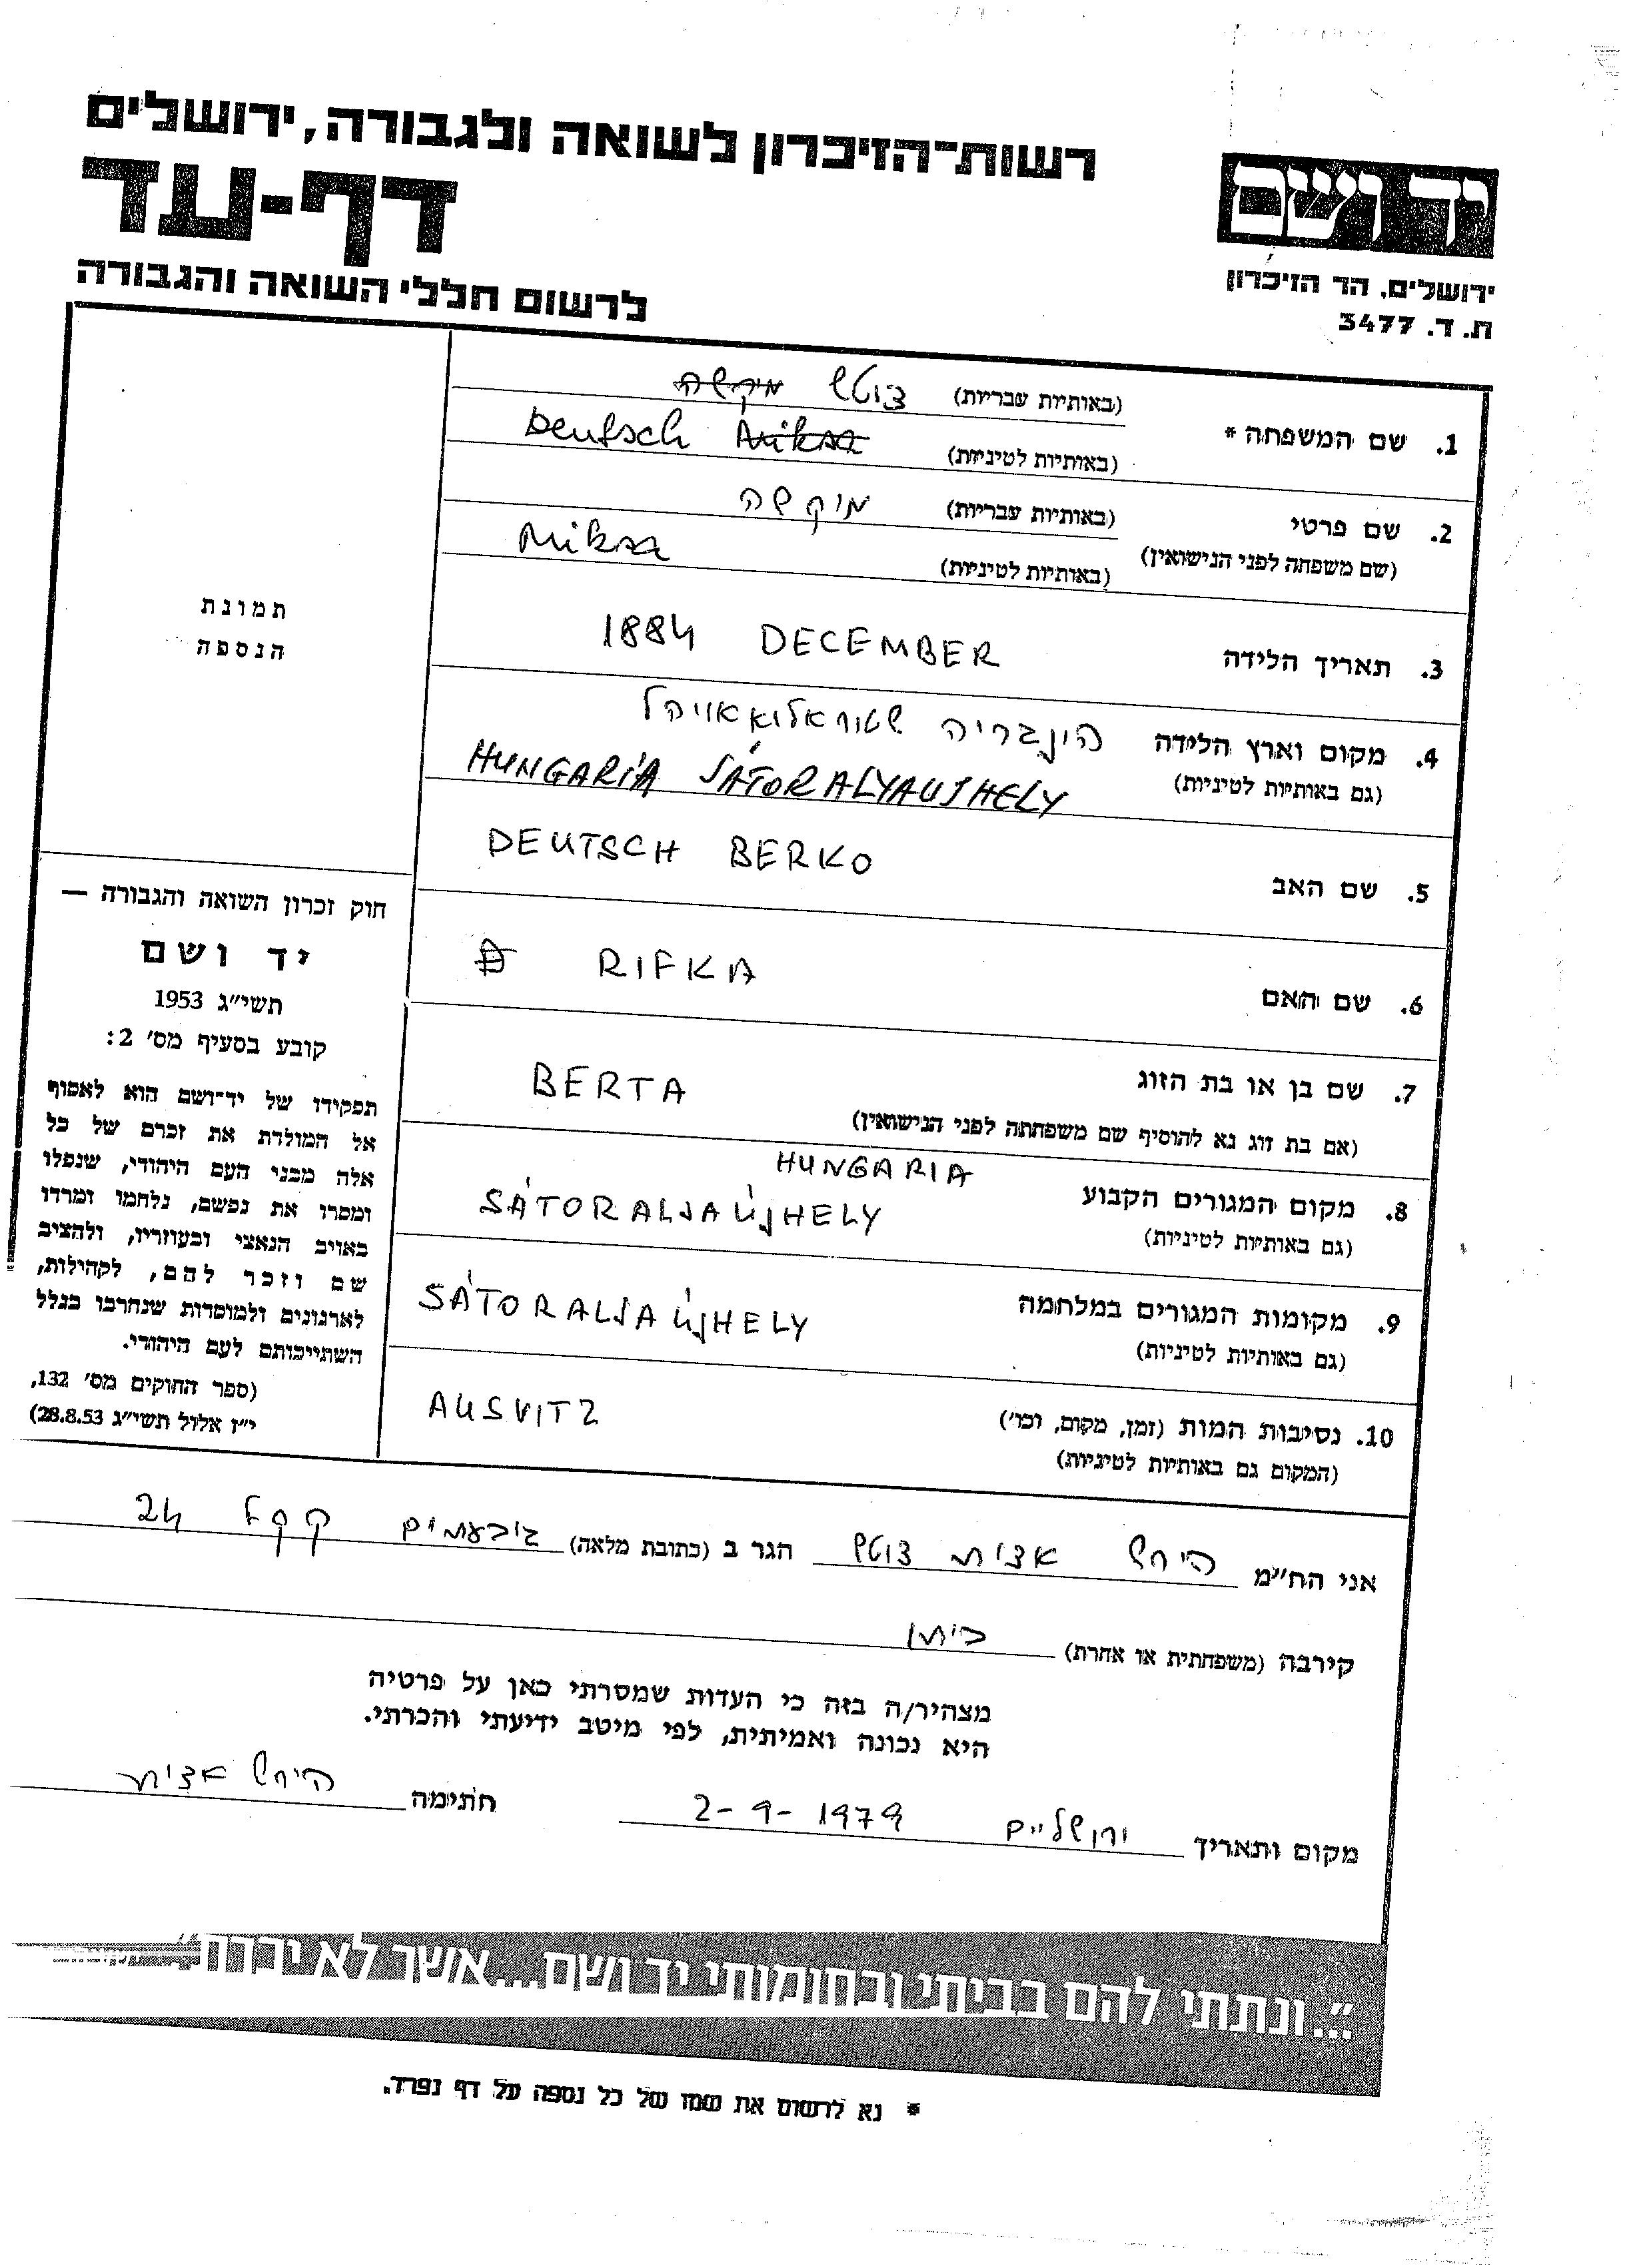 רשות־הזיכרון לשואה ולגבורה, ירושלים
דף-עד
לרשום חללי השואה והגבורה
יד ושם
ירושלים, הר הזיכרון
ת. ד. 3477
1. שם המשפחה * (באותיות עבריות) דוטש מיקשה
(באותיות לטיניות) Deutsch Miksa
2. שם פרטי (באותיות עבריות) מיקשה
(שם משפחה לפני הנישואין) (באותיות לטיניות) Miksa
3. תאריך הלידה 1884 DECEMBER
4. מקום וארץ הלידה הינגריה
(גם באותיות לטיניות) HUNGARIA SÁTORALYAUJHELY
5. שם האב DEUTSCH BERKO
6. שם האם RIFKA
7. שם בן או בת הזוג BERTA
(אם בת זוג נא להוסיף שם משפחתה לפני הנישואין)
8. מקום המגורים הקבוע HUNGARIA
(גם באותיות לטיניות) SÁTORALJAÚJHELY
9. מקומות המגורים במלחמה SÁTORALJAÚJHELY
(גם באותיות לטיניות)
10. נסיבות המות (זמן, מקום, וכו') AUSVITZ
(המקום גם באותיות לטיניות)
תמונת
הנספה
חוק זכרון השואה והגבורה —
יד ושם
תשי"ג 1953
קובע בסעיף מס' 2:
תפקידו של יד־ושם הוא לאסוף
אל המולדת את זכרם של כל
אלה מבני העם היהודי, שנפלו
ומסרו את נפשם, נלחמו ומרדו
באויב הנאצי ובעוזריו, ולהציב
שם וזכר להם, לקהילות,
לארגונים ולמוסדות שנחרבו בגלל
השתייכותם לעם היהודי.
(ספר החוקים מס' 132,
י"ז אלול תשי"ג 28.8.53)
אני הח"מ הירש דוטש הגר ב (כתובת מלאה) גבעתיים קקל 24
קירבה (משפחתית או אחרת)
מצהיר/ה בזה כי העדות שמסרתי כאן על פרטיה
היא נכונה ואמיתית, לפי מיטב ידיעתי והכרתי.
מקום ותאריך ירושליים 2-9-1979 חתימה הירש
"...ונתתי להם בביתי ובחומותי יד ושם...אשר לא יכרת"
* נא לרשום את שמו של כל נספה על דף נפרד.